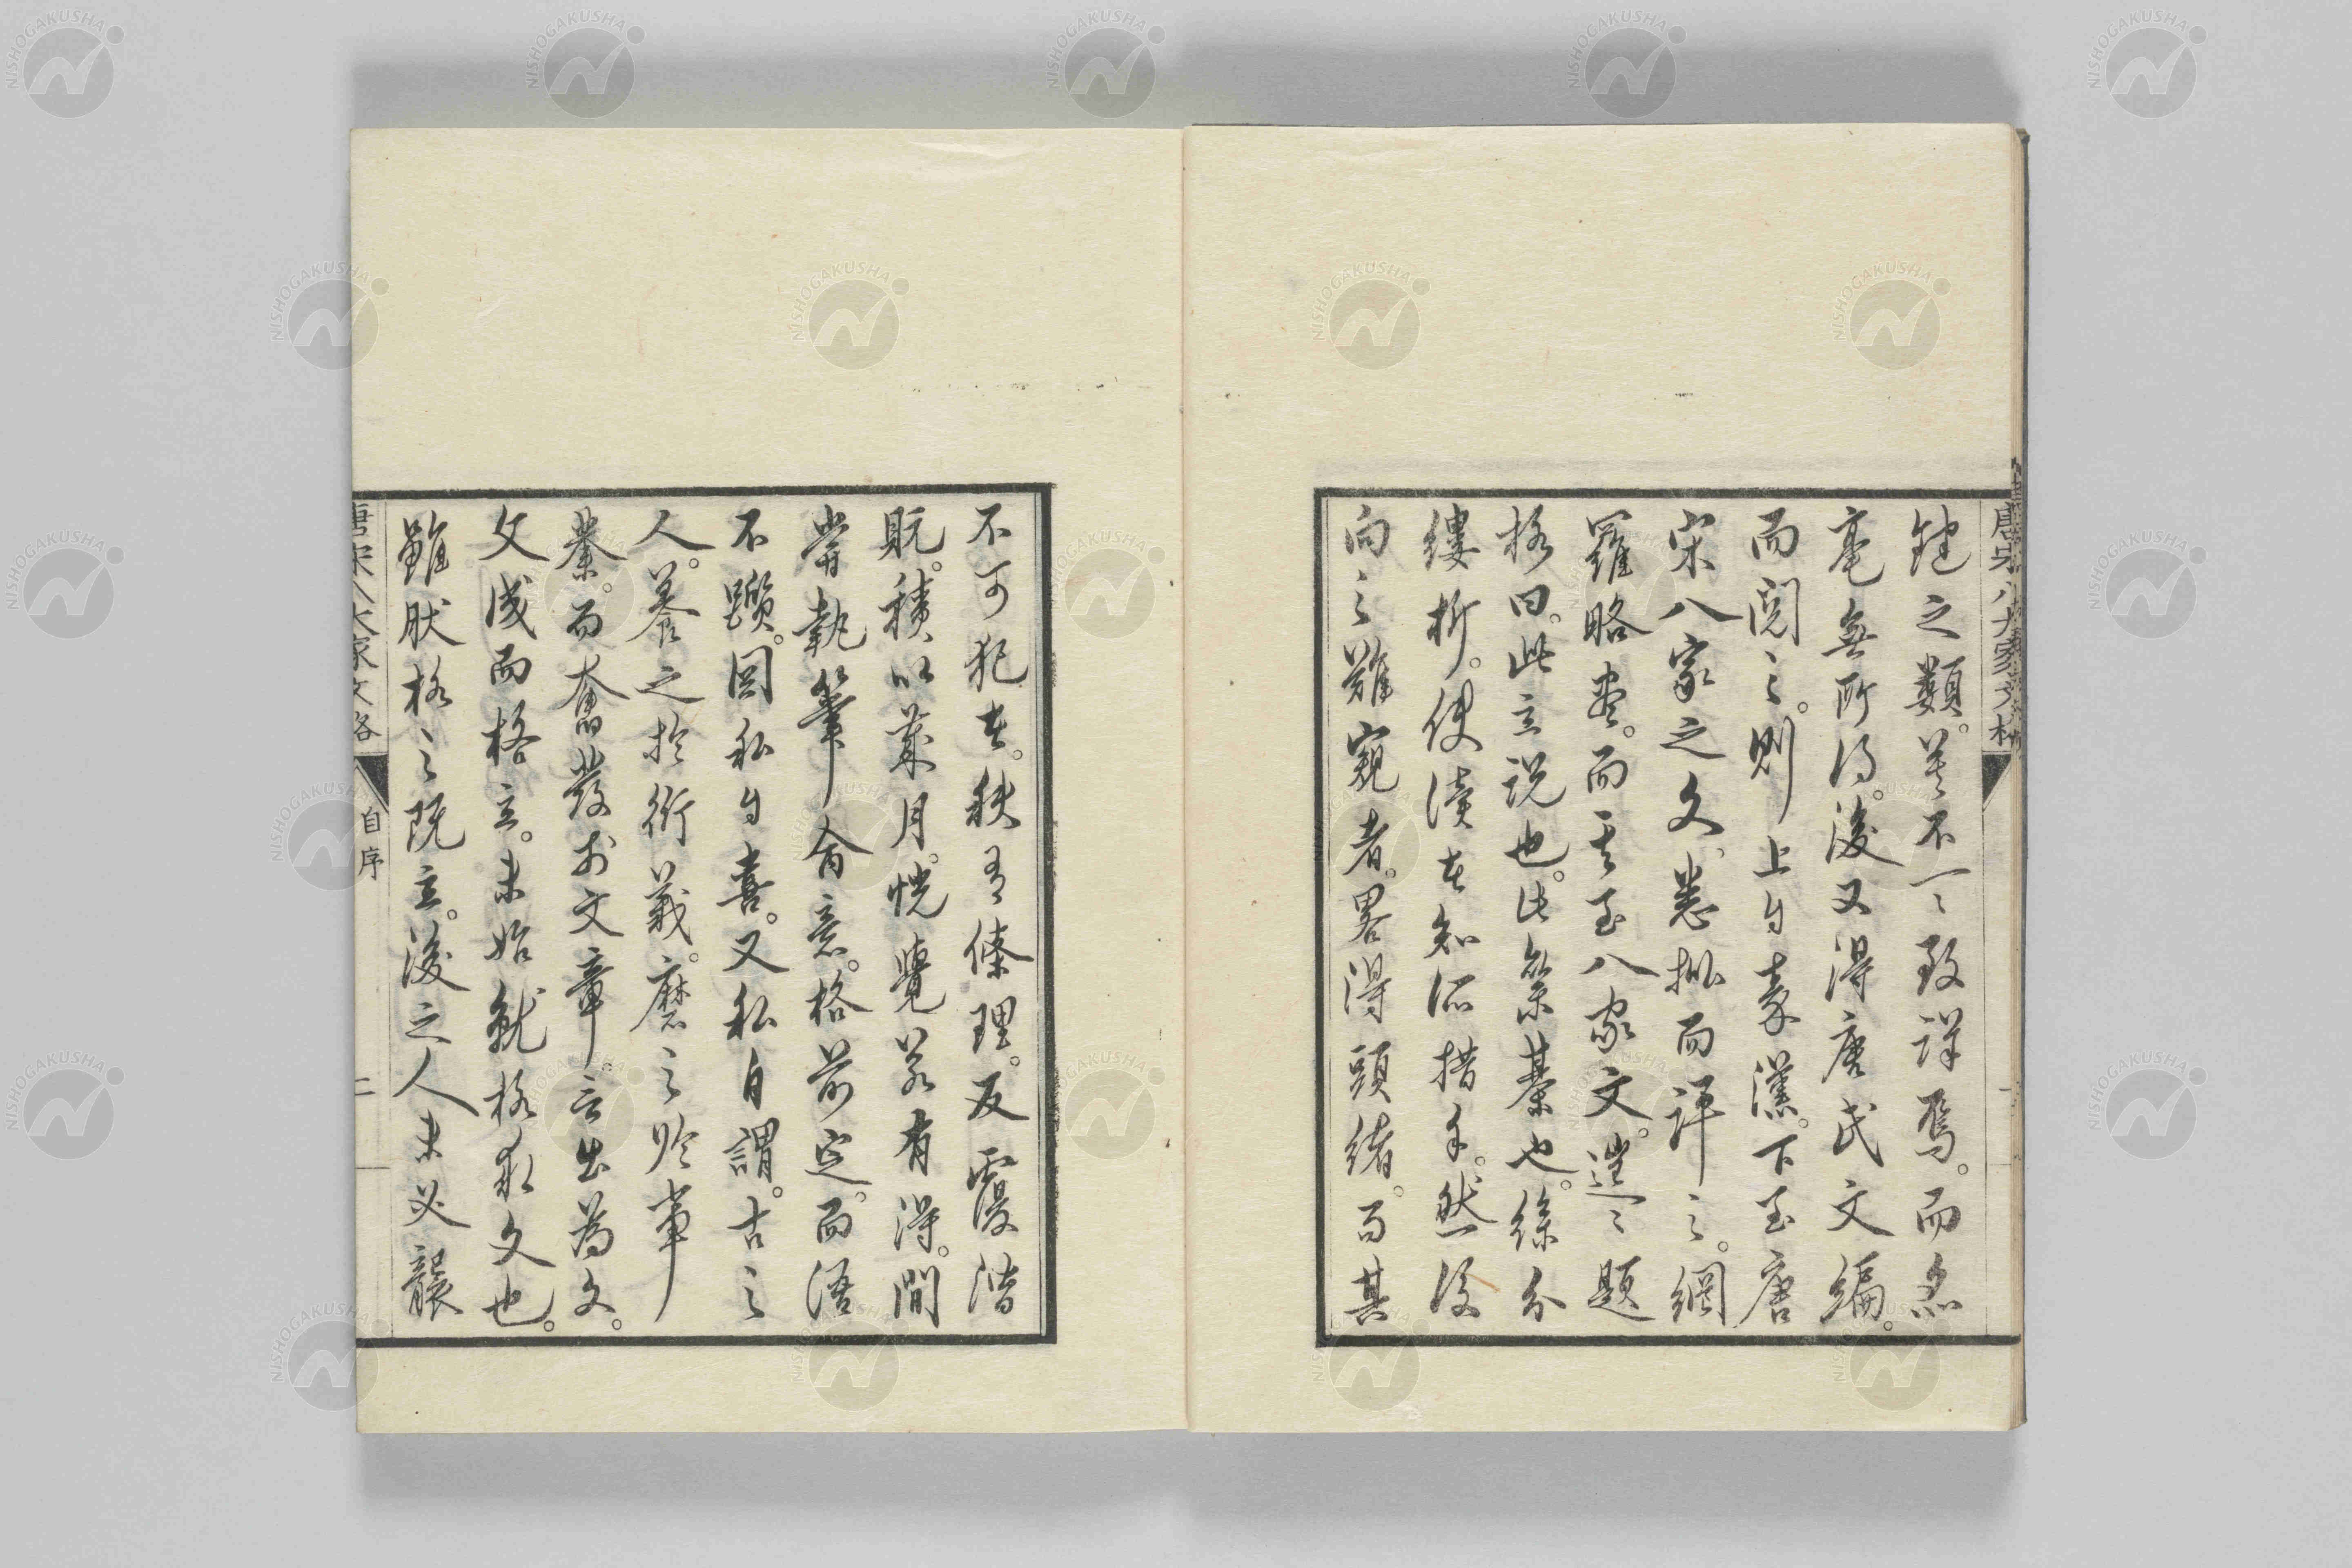 鍵之類。並不一致詳焉。而忽
毫無所得。後又得唐氏文編。
而閲之。則上自秦漢。下至唐
宋八家之文。悉批而評之。網
羅略盡。而其至八家文。選〻題
格曰。此立説也。此策綦也。條分
縷析。使讀者知所措手。然後
向之難窺者。畧得頭緒。而其
不可犯者。秩有條理。反覆潛
翫。積以歲月。恍覺若有得。間
嘗執筆命意。格前定。而語
不躓。因私自喜。又私自謂。古之
人。養之於術義。磨之於事
業。而奮發於文章。言出為文。
文成而格立。未始就格求文也。
雖然格之既立。後之人未必襲
唐宋八大家文格
自序
二
唐宋八大家文格
NISHOGAKUSHA